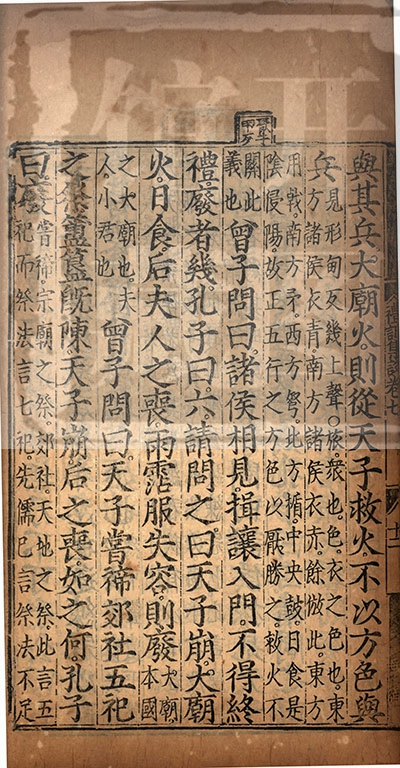 與其兵大廟火則從天子救火不以方色與
兵
見形甸反幾上聲○旅衆也色衣之色也東
方諸侯衣青南方諸侯衣赤餘倣此東方
用戟南方矛西方弩北方楯中央鼓日食是
陰侵陽故正五行之方色以厭勝之救火不
關此
義也
曾子問曰諸侯相見揖讓入門不得終
禮廢者幾孔子曰六請問之曰天子崩大廟
火日食后夫人之喪雨霑服失容則廢
大廟
本國
之大廟也夫
人小君也
曾子問曰天子嘗禘郊社五祀
之祭簠簋既陳天子崩后之喪如之何孔子
曰廢
嘗禘宗廟之祭郊社天地之祭此言五
祀而祭法言七祀先儒已言祭法不足